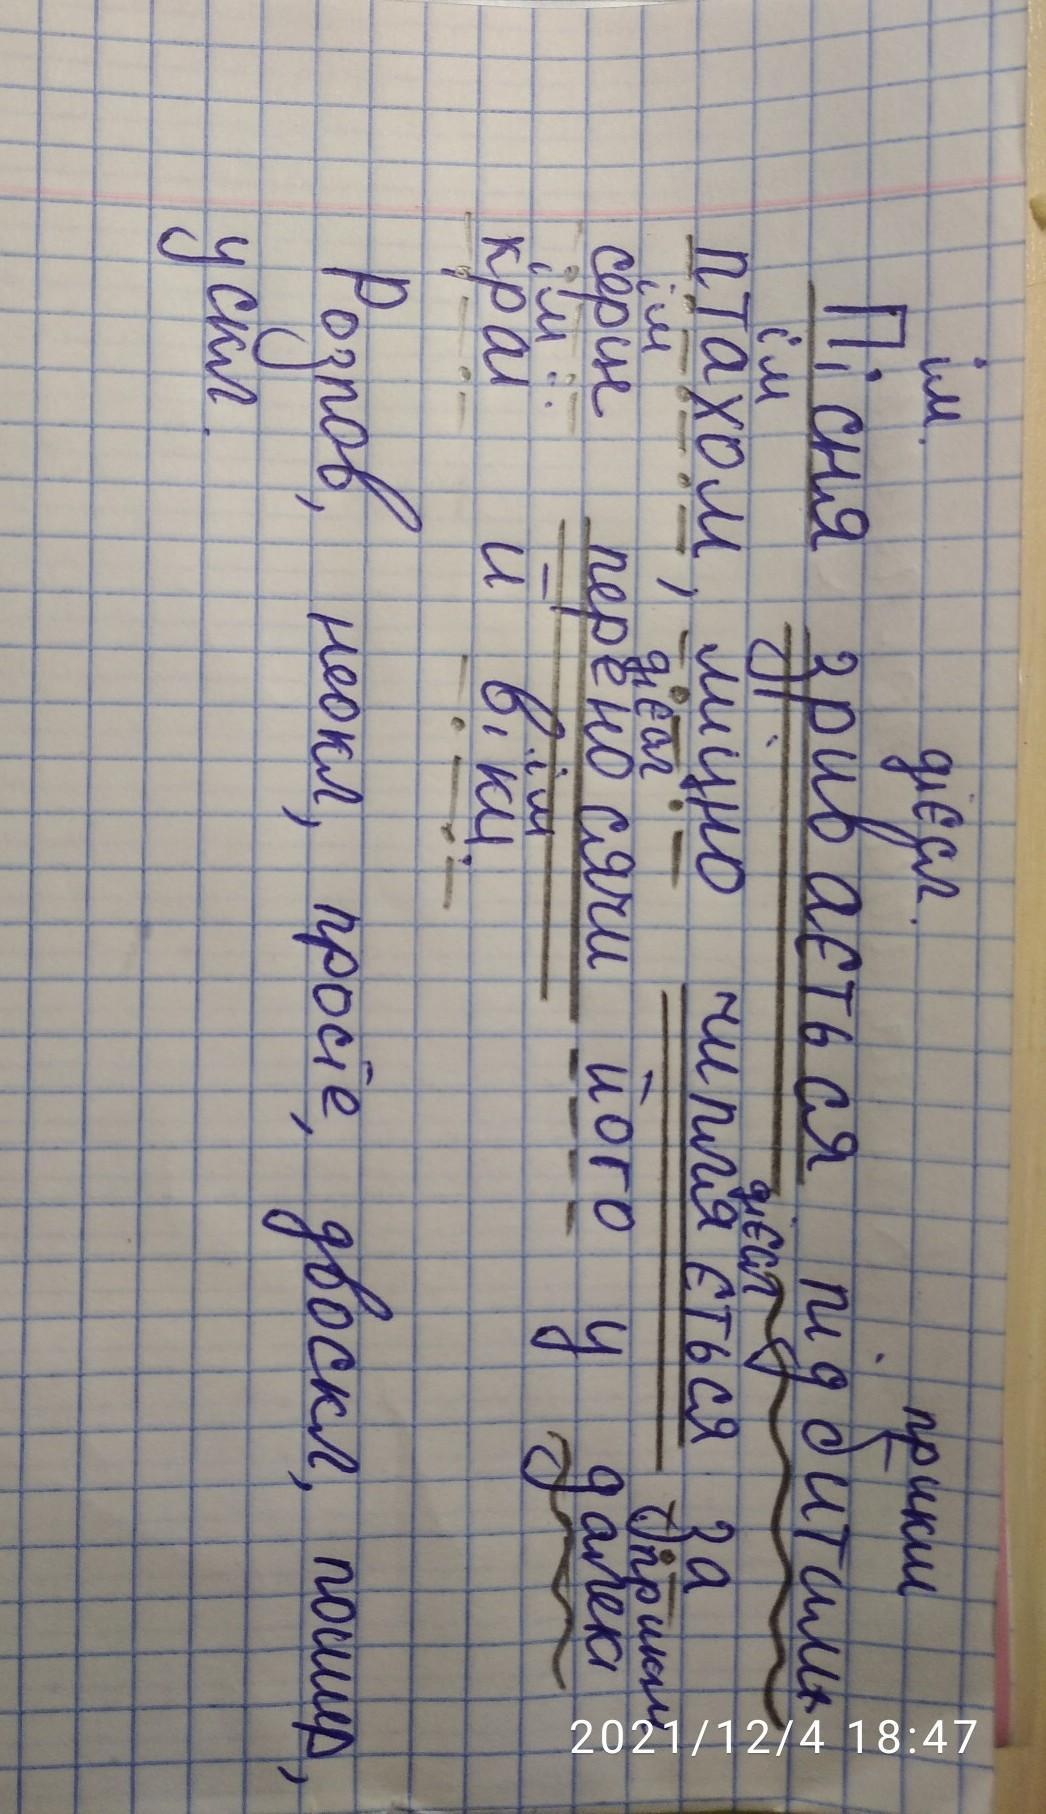 ім. дієсл. прикм
Пісня зривається підбитим
ім дієсл
птахом, міцно чипляється за
ім дієсл прикм
серце переносячи його у далекі
ім ім
краї й віки
Розпов, неокл, просте, двоскл, пошир,
ускл.
2021/12/4 18:47